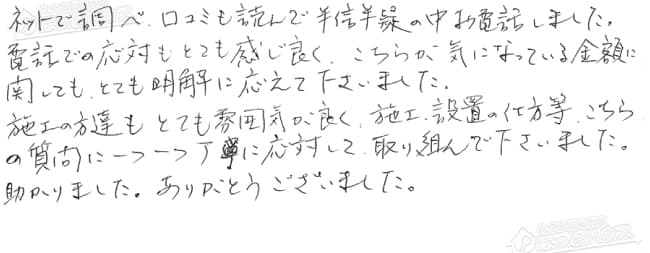 ネットで調べ、口コミも読んで半信半疑の中お電話しました。
電話での応対もとても感じ良く、こちらが気になっている金額に
関しても、とても明解に応えて下さいました。
施工の方達もとても雰囲気が良く、施工、設置の仕方等、こちら
の質問に一つ一つ丁寧に応対して、取り組んで下さいました。
助かりました。ありがとうございました。